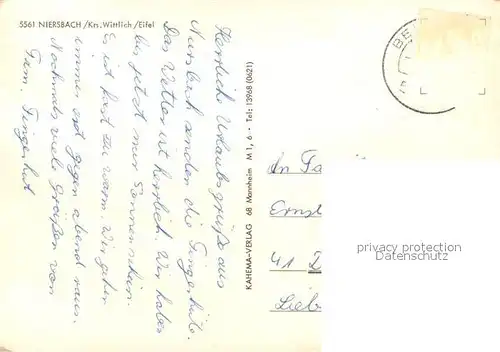 5561 NIERSBACH /Krs. Wittlich /Eifel
Herrliche Urlaubsgrüße aus
Niersbach senden die Fingerhüte.
Das Wetter ist herrlich. Wir haben
bis jetzt nur Sonnenschein.
Es ist fast zu warm. Wir gehen
immer erst gegen abend raus.
Nochmals viele Grüße von
Fam. Fingerhut
KAHEMA-VERLAG 68 Mannheim M 1, 6 • Tel: 13968 (0621)
BE
An Fa
Ernst
41 D
Lieb
privacy protection
for Ansichtskarten